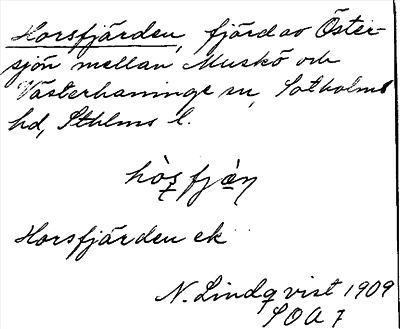 Horsfjärden, fjärd av Öster-
sjön mellan Muskö och
Västerhaninge sn, Sotholms
hd, Sthlms l.
Horsfjärden ek
N. Lindqvist 1909
SOA 7